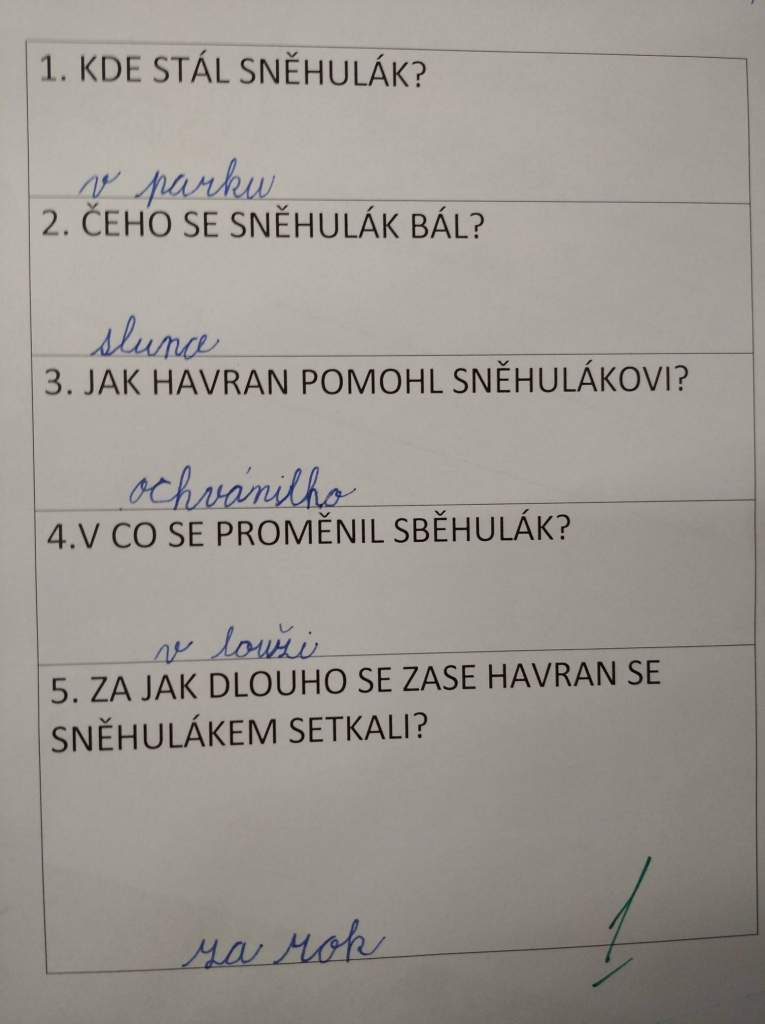 1. KDE STÁL SNĚHULÁK?
v parku
2. ČEHO SE SNĚHULÁK BÁL?
slunce
3. JAK HAVRAN POMOHL SNĚHULÁKOVI?
ochránilho
4.V CO SE PROMĚNIL SBĚHULÁK?
v louži
5. ZA JAK DLOUHO SE ZASE HAVRAN SE
SNĚHULÁKEM SETKALI?
za rok
1